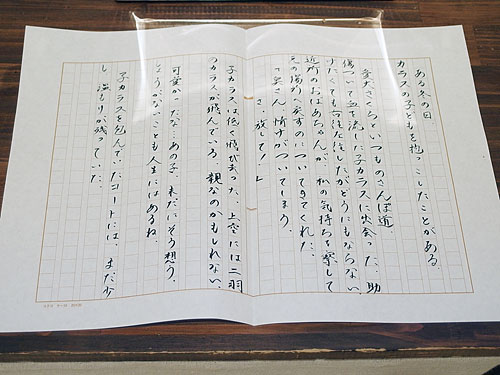 ある冬の日
カラスの子どもを抱っこしたことがある。
愛犬さくらといつものさんぽ道
傷ついて血を流した子カラスに出会った。助
けたくても右往左往したがどうにもならない。
近所のおばあちゃんが、私の気持ちを察して
元の場所へ戻すのについてきてくれた。
「奥さん、情がついてしまう。
さ、放して!」
子カラスは低く飛び去った。上空には二羽
のカラスが飛んでいる。親なのかもしれない。
可愛かったな、あの子。未だにそう想う。
しょうがないことも人生にはあるね。
子カラスを包んでいたコートには、まだ少
し温もりが残っていた。